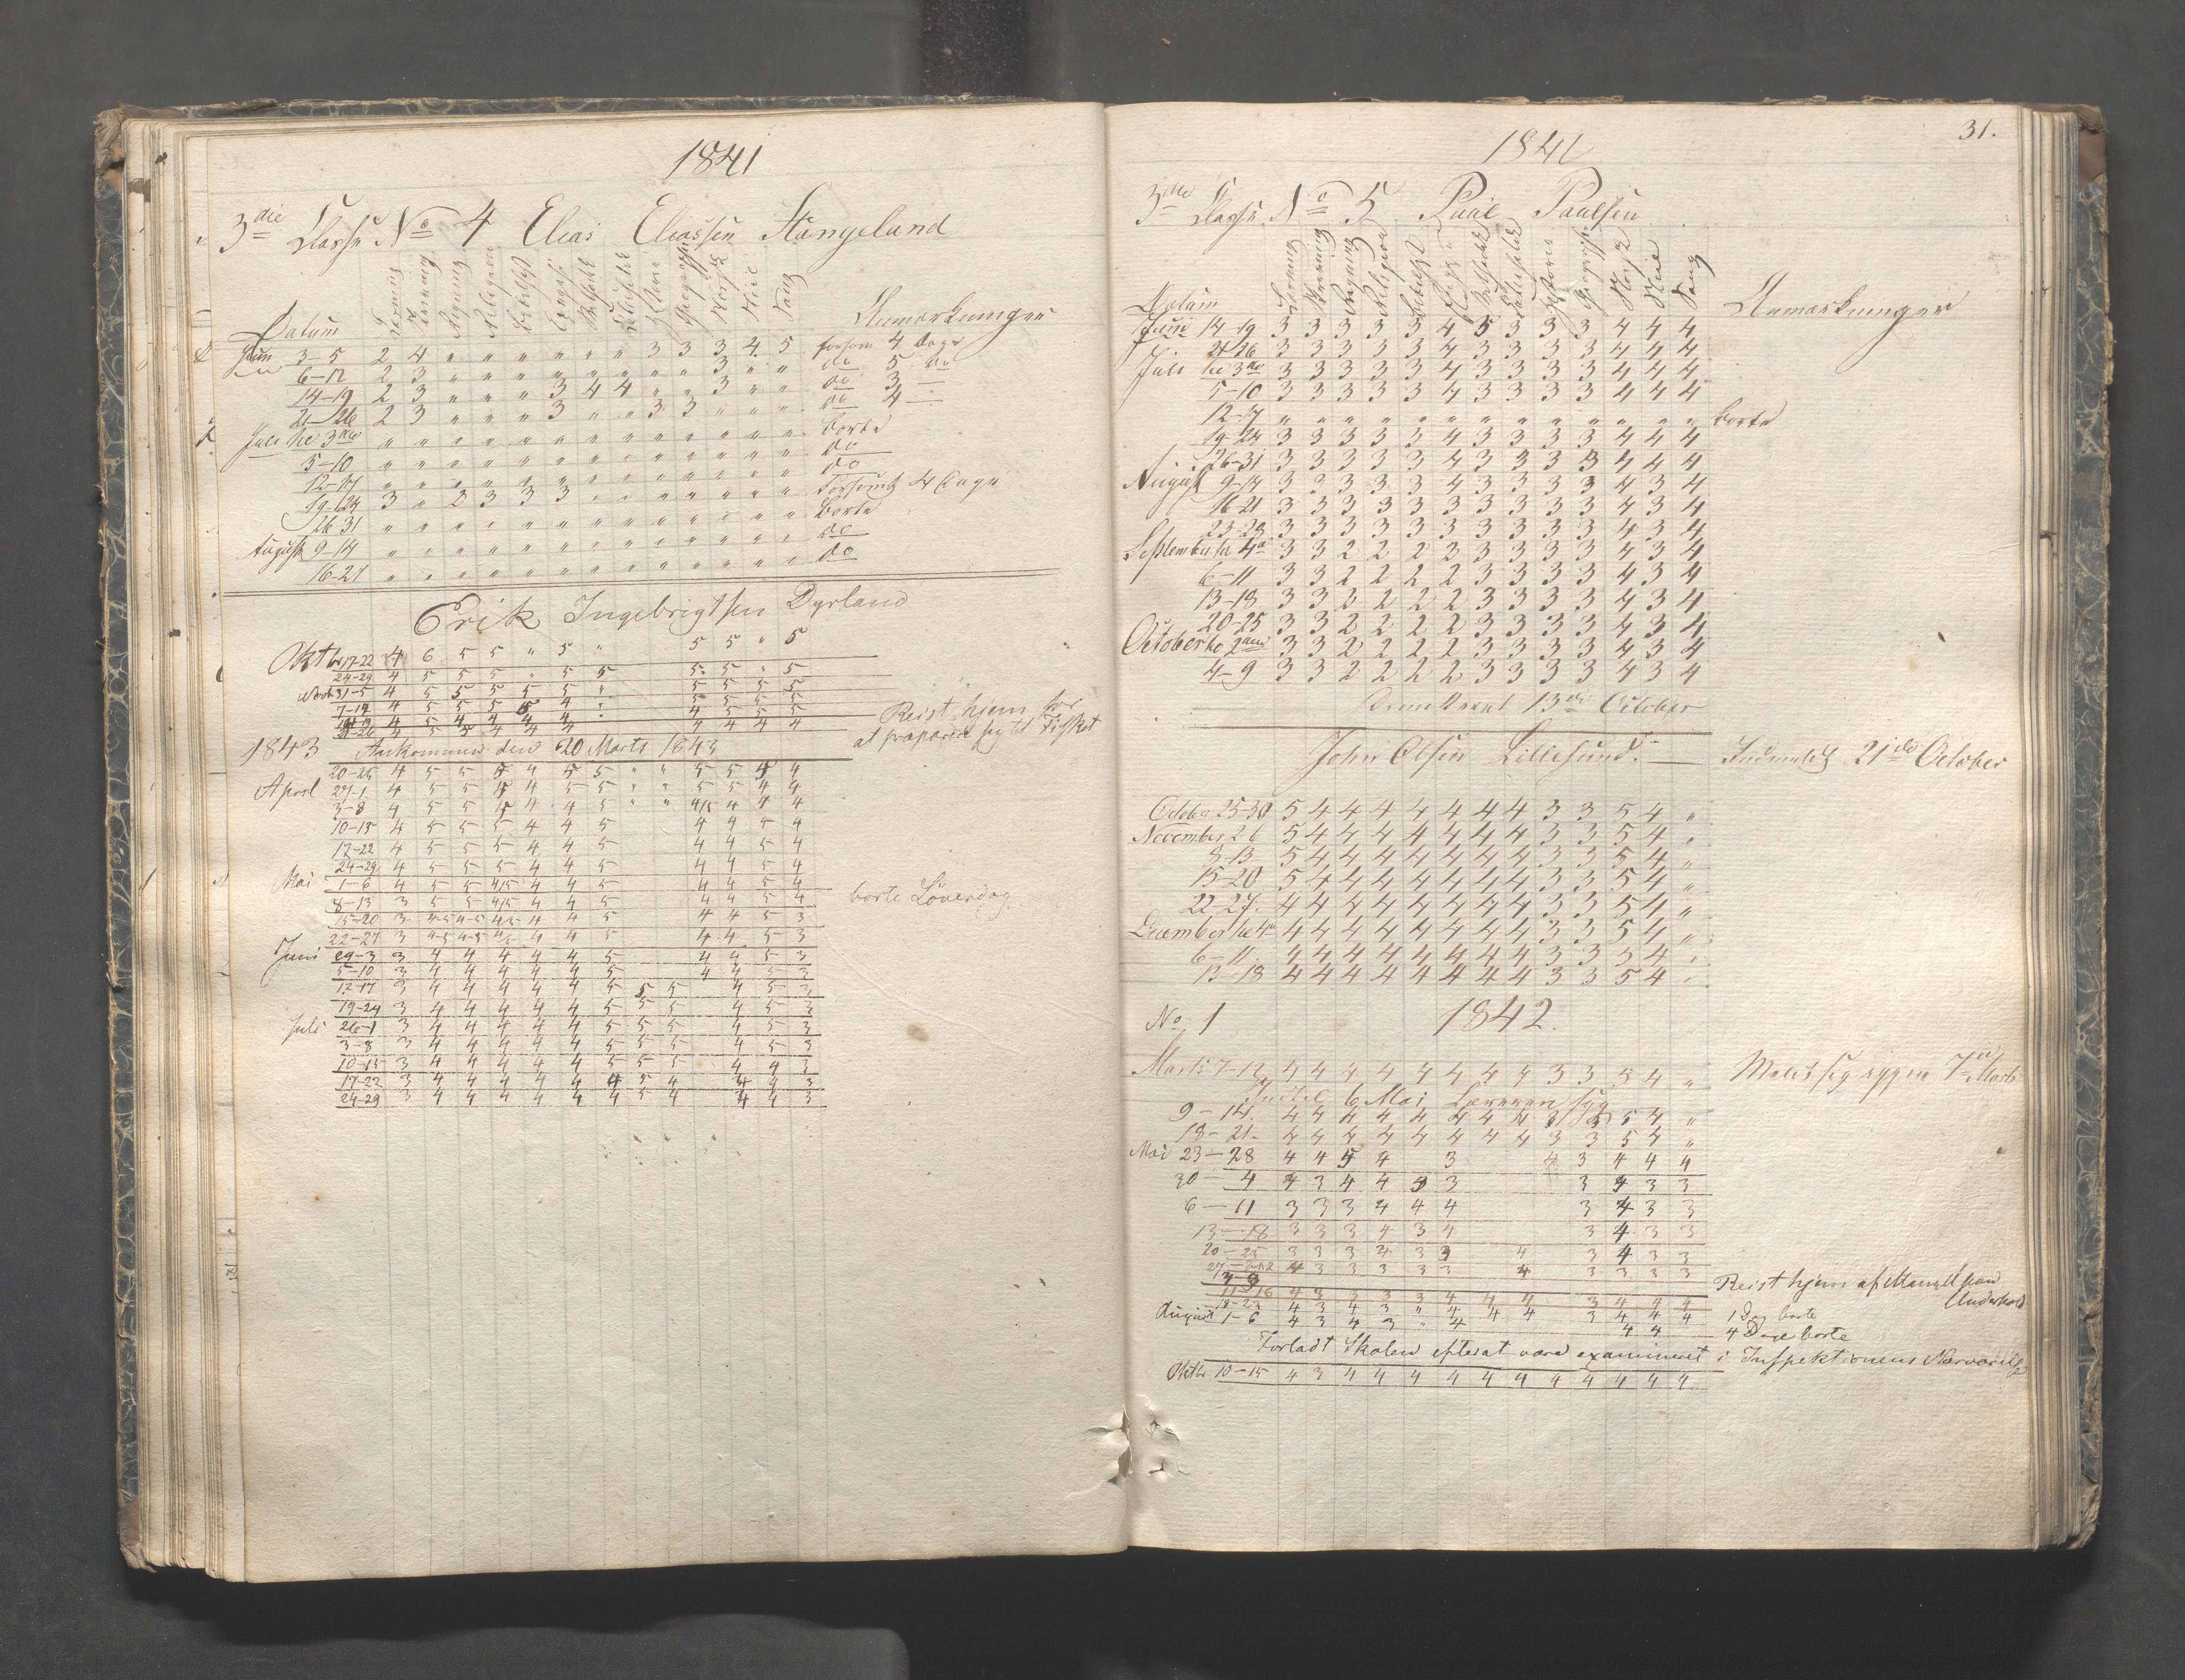 1841
3die Classe No 4 Elias Eliassen Stangeland
Datum Læsning Skrivning Regning Religion Geographi Norsk Flid Sang Anmærkninger
Juni 3-5 2 4 " " " " " " " 3 3 3 4 5 forsømt 4 Dage
6-12 2 3 " " " " " " " " " 3 " " do 5 do
14-19 2 3 " " " 3 4 4 " " 3 " " do 3 —
21-26 2 3 " " " 3 " " 3 3 " " " do 4 —
Juli til 3die " " " " " " " " " " " " " borte
5-10 " " " " " " " " " " " " " do
12-17 " " " " " " " " " " " " " do
19-24 3 " 2 3 3 3 " " " " " " " Forsømt 4 Dage
26-31 " " " " " " " " " " " " " borte
August 9-14 " " " " " " " " " " " " " do
16-21 " " " " " " " " " " " " " do
Erik Ingebrigtsen Dyrland
Oktbr 17-22 4 6 5 5 " 5 " 5 5 " 5
24-29 4 5 5 5 " 5 5 5 5 " 5
Novb 31-5 4 5 5 5 5 5 " 5 5 5 5
7-12 4 5 5 5 5 4 " 5 5 5 5
14-19 4 5 4 4 4 4 " 4 5 5 5
21-26 4 5 5 4 4 4 4 4 4 4
Reist hjem for
at præparere sig til Fisket
1843 Ankommen den 20 Marts 1843
20-25 4 5 5 5 4 5 5 " " 5 5 5 4
April 27-1 4 5 5 5 4 5 5 " " 5 5 4 4
3-8 4 5 5 5 4 4 5 " " 4/5 4 4 4
10-15 4 5 5 5 4 4 5 4 4 5 4
17-22 4 5 5 5 4 4 5 4 4 5 4
24-29 4 5 5 5 4 4 5 4 4 5 4
Mai 1-6 4 5 5 4/5 4 4 5 4 4 5 4
8-13 3 5 5 4/5 4 4 5 4 4 5 4 borte Löverdag
15-20 3 4-5 4-5 4/5 4 4 5 4 4 5 3
22-27 3 4-5 4-5 4/5 4 4 5 4 4 5 3
Juni 29-3 3 4 4 4 4 4 5 4 4 5 3
5-10 3 4 4 4 4 4 5 4 4 5 3
12-17 3 4 4 4 4 4 5 5 5 4 5 3
19-24 3 4 4 4 4 4 5 5 5 4 5 3
Juli 26-1 3 4 4 4 4 4 5 5 5 4 5 3
3-8 3 4 4 4 4 4 5 5 5 4 5 3
10-15 3 4 4 4 4 4 5 5 5 4 4 3
17-22 3 4 4 4 4 4 4 5 4 4 4 3
24-29 3 4 4 4 4 4 4 5 4 4 4 3
31.
1841
3die Classe No 5 Paul Paulsen
Datum Læsning Skrivning Regning Religion Historie Geographi Norsk Flid Sang Anmærkninger
Juni 14-19 3 3 3 3 3 4 5 3 3 3 4 4 4
21-26 3 3 3 3 3 4 3 3 3 3 4 4 4
Juli til 3die 3 3 3 3 3 4 3 3 3 3 4 4 4
5-10 3 3 3 3 3 4 3 3 3 3 4 4 4
12-17 " " " " " " " " " " " " " borte
19-24 3 3 3 3 3 4 3 3 3 3 4 4 4
26-31 3 3 3 3 3 4 3 3 3 3 4 4 4
August 9-14 3 3 3 3 3 4 3 3 3 3 4 3 4
16-21 3 3 3 3 3 3 3 3 3 3 4 3 4
23-28 3 3 3 3 3 3 3 3 3 3 4 3 4
September til 4de 3 3 2 2 2 3 3 3 3 3 4 3 4
6-11 3 3 2 2 2 2 3 3 3 3 4 3 4
13-18 3 3 2 2 2 2 3 3 3 3 4 3 4
20-25 3 3 2 2 2 2 3 3 3 3 4 3 4
October to 2den 3 3 2 2 2 2 3 3 3 3 4 3 4
4-9 3 3 2 2 2 2 3 3 3 3 4 3 4
13de October
John Olsen Lillesund. — Indmeldt 21de October
October 25-30 5 4 4 4 4 4 4 4 3 3 5 4 "
November 2-6 5 4 4 4 4 4 4 4 3 3 5 4 "
8-13 5 4 4 4 4 4 4 4 3 3 5 4 "
15-20 5 4 4 4 4 4 4 4 3 3 5 4 "
22-27. 4 4 4 4 4 4 4 4 3 3 5 4 "
December til 4de 4 4 4 4 4 4 4 4 3 3 5 4 "
6-11. 4 4 4 4 4 4 4 4 3 3 5 4 "
13-18 4 4 4 4 4 4 4 4 3 3 5 4 "
No 1 1842.
Marts 7-12 4 4 4 4 4 4 4 4 3 3 5 4 " Meldt sig igjen 7de Marts
Indtil 6 Mai Læreren syg
9-14. 4 4 4 4 4 4 4 4 3 3 5 4 "
18-21- 4 4 4 4 4 4 4 4 3 3 5 4 "
Mai 23-28 4 4 5 4 3 4 3 4 4 4
30-4 4 3 4 4 3 3 3 4 3 3
6-11 3 3 3 4 4 4 3 4 3 3
13-18 3 3 3 4 3 4 3 4 3 3
20-25 3 3 3 4 3 3 4 3 4 3 3
27-2 4 3 3 3 3 3 4 3 3 3 3
3-9 Reist hjem af Mangel paa
Underhold
11-16 4 3 3 3 3 4 4 4 3 4 4 4
18-23 4 3 4 3 " 4 4 4 3 4 4 4 1 Dag borte
August 1-6 4 3 4 3 " 4 4 4 4 Dage borte
Forladt Skolen efterat være examineret i Inspektionens Nærværelse
Oktbr 10-15 4 3 4 4 4 4 4 4 4 4 4 4 4